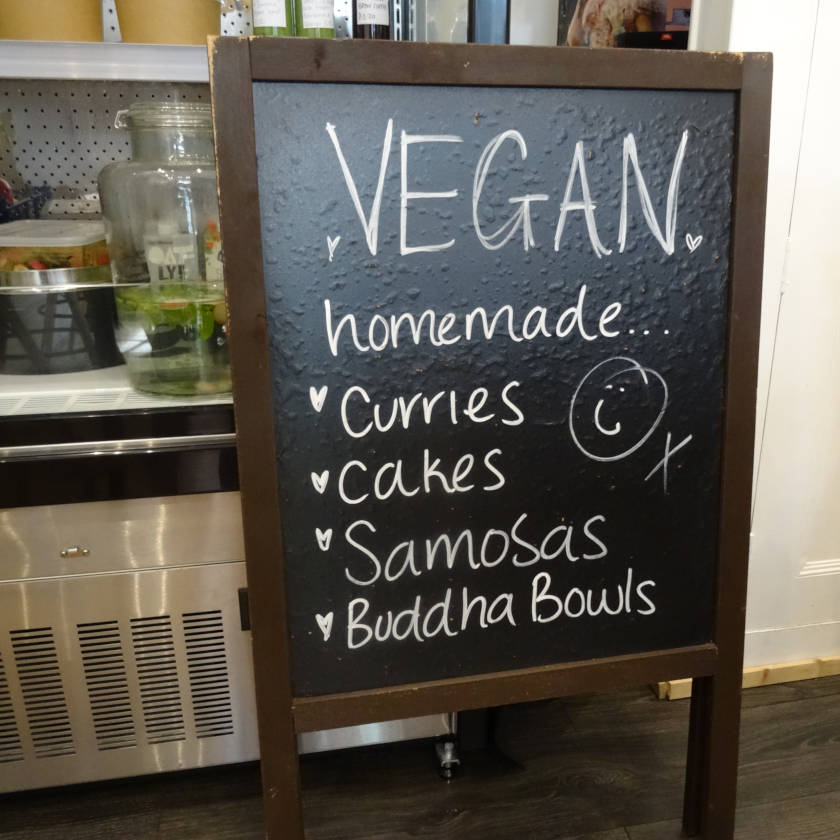 VEGAN
homemade...
Curries
Cakes
Samosas
Buddha Bowls